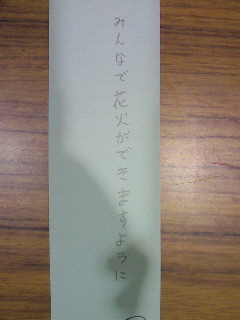 みんなで花火ができますように